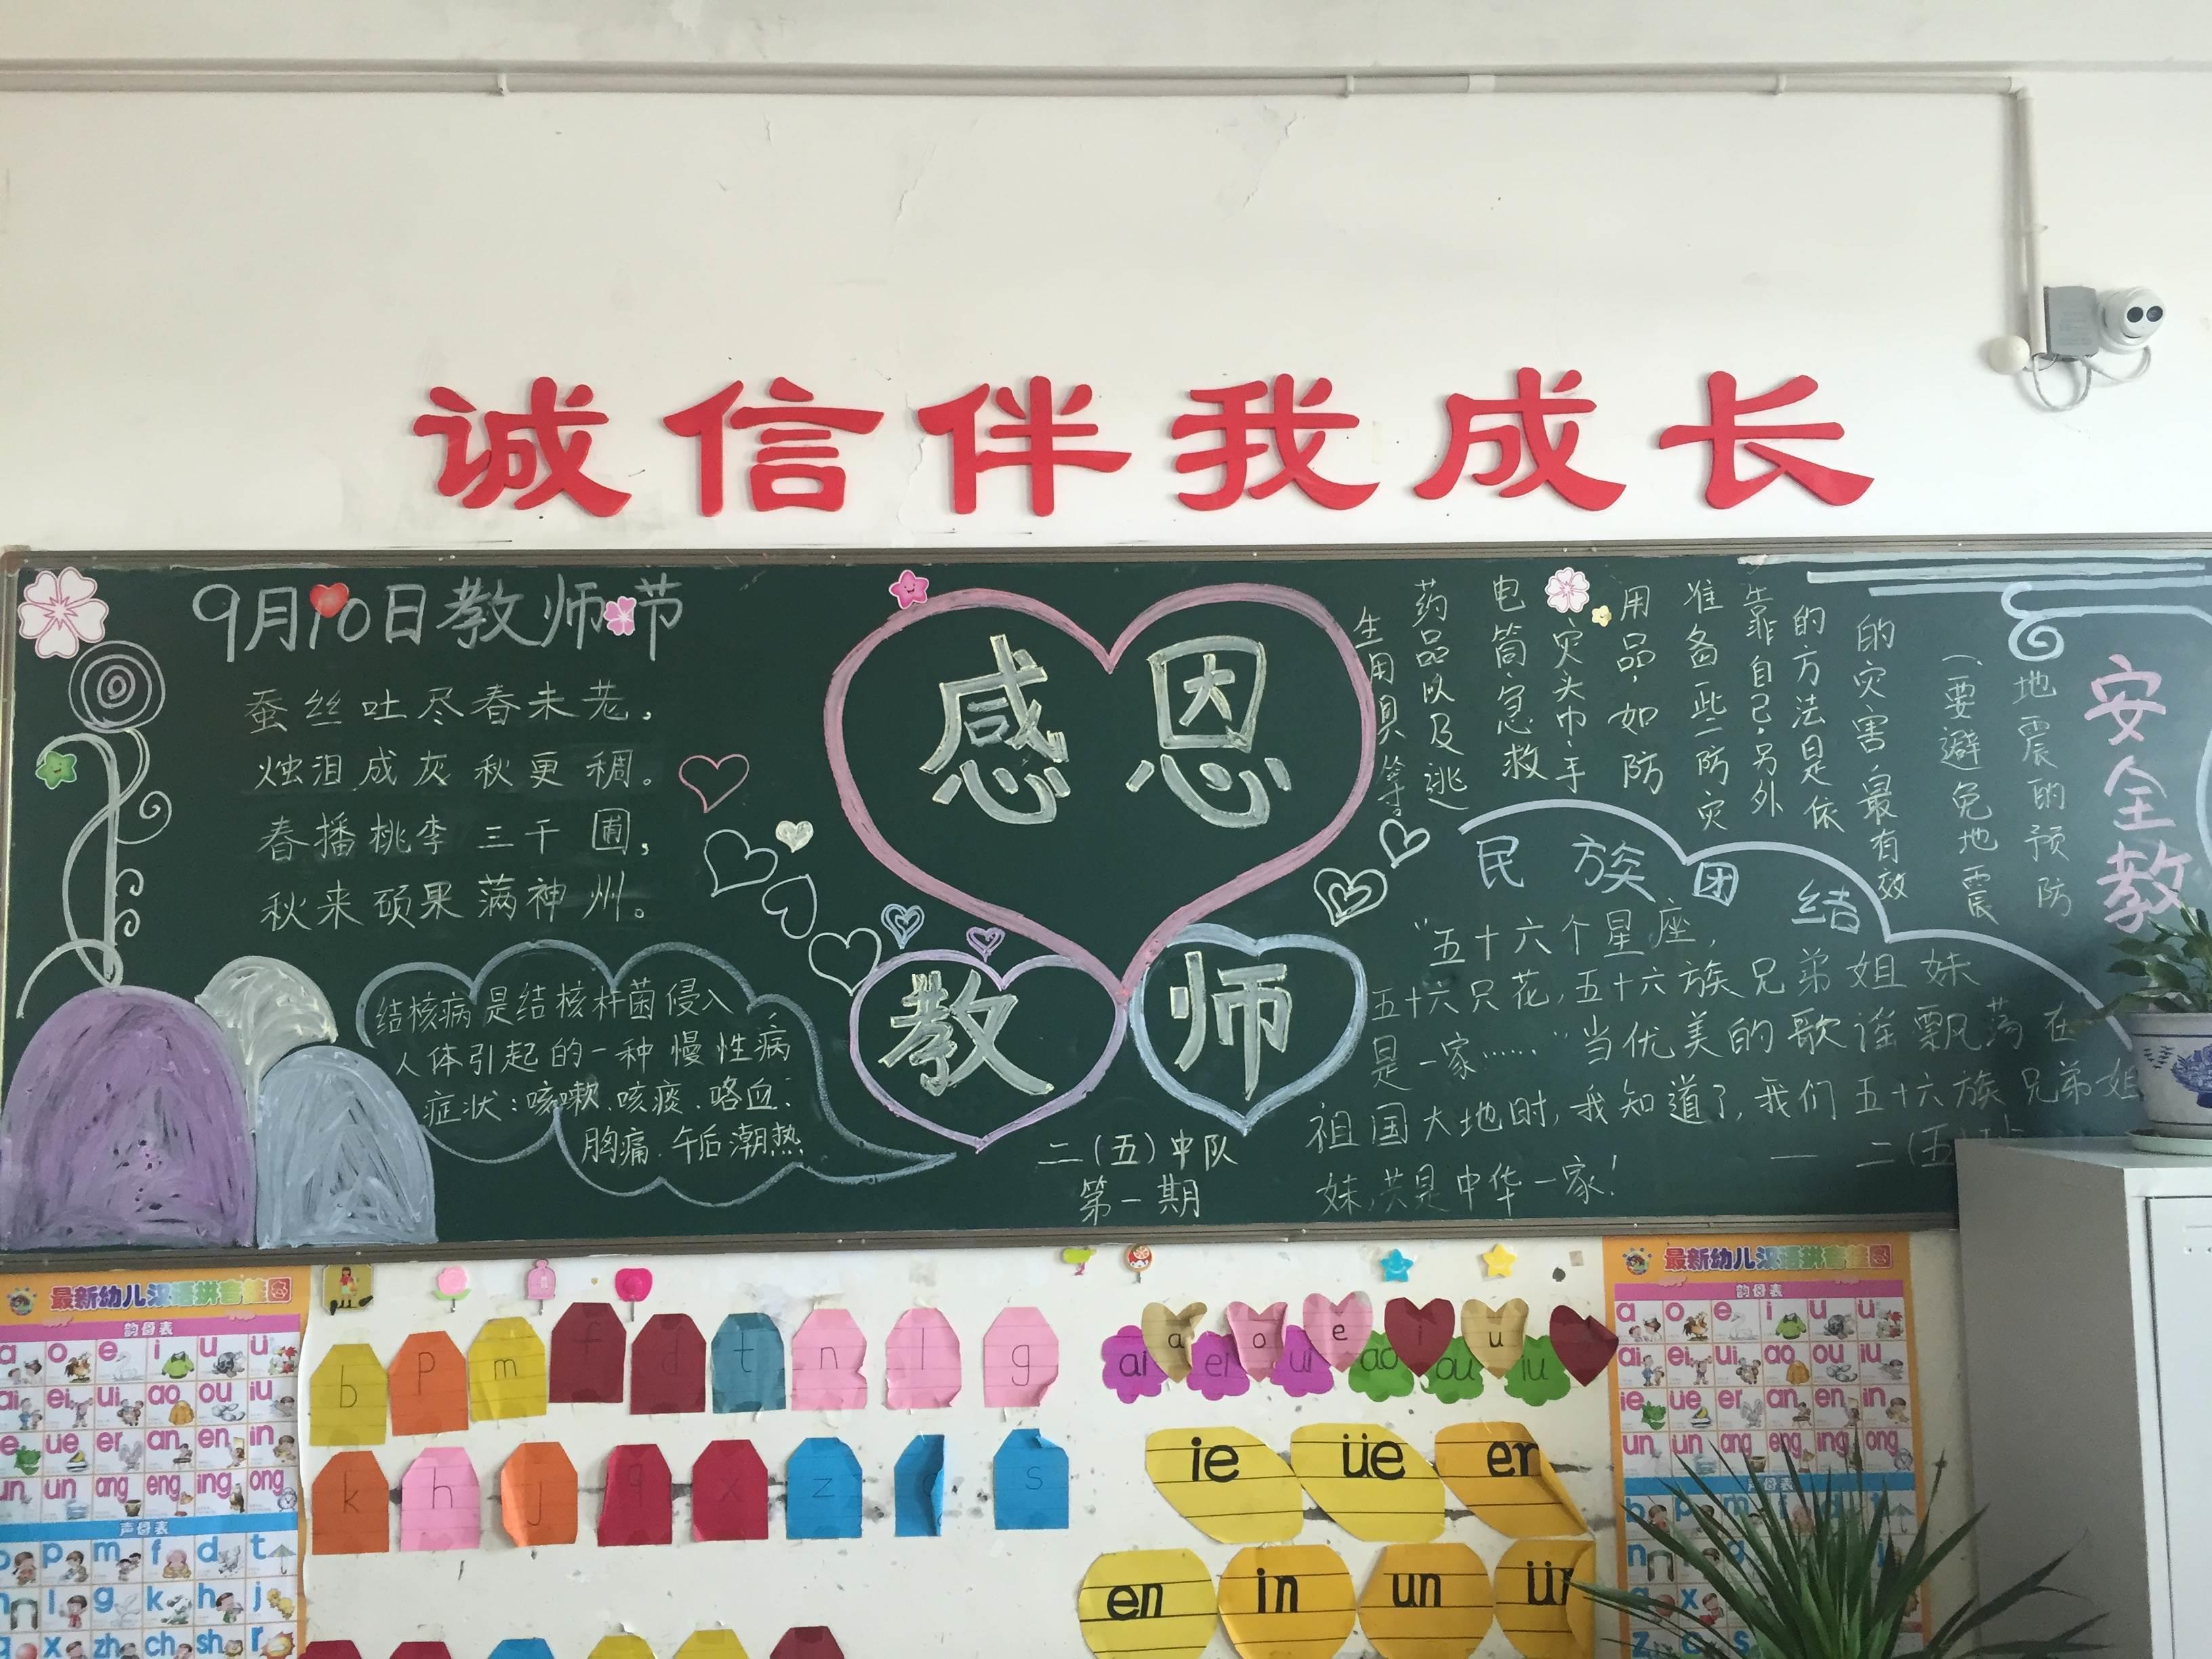 诚信伴我成长
9月10日教师节
蚕丝吐尽春未老，
烛泪成灰秋更稠。
春播桃李三千圃，
秋来硕果满神州。
感恩
教师
结核病是结核杆菌侵入
人体引起的一种慢性病，
症状：咳嗽、咳痰、咯血、
胸痛、午后潮热
二（五）中队
第一期
安全教
地震的预防
（要避免地震
的灾害，最有效
的方法是依
靠自己，另外
准备一些防灾
用品，如防
灾头巾、手
电筒、急救
药品以及逃
生用具等。
民族团结
“五十六个星座，
五十六只花，五十六族兄弟姐妹
是一家……”当优美的歌谣飘荡在
祖国大地时，我知道了，我们五十六族兄弟姐
妹，共是中华一家！
— 二（五）
最新幼儿汉语拼音挂图
韵母表
a o e i u ü
ai ei ui ao ou iu
ie üe er an en in
un ün ang eng ing ong
声母表
b p m f d t
n l g k h j
q x zh ch sh r
b p m f d t n l g
k h j q x z c s
a o e i u
ai ei ui ao ou iu
ie üe er
en in un ün
最新幼儿汉语拼音挂图
韵母表
a o e i u ü
ai ei ui ao ou iu
ie üe er an en in
un ün ang eng ing ong
声母表
b p m f d t